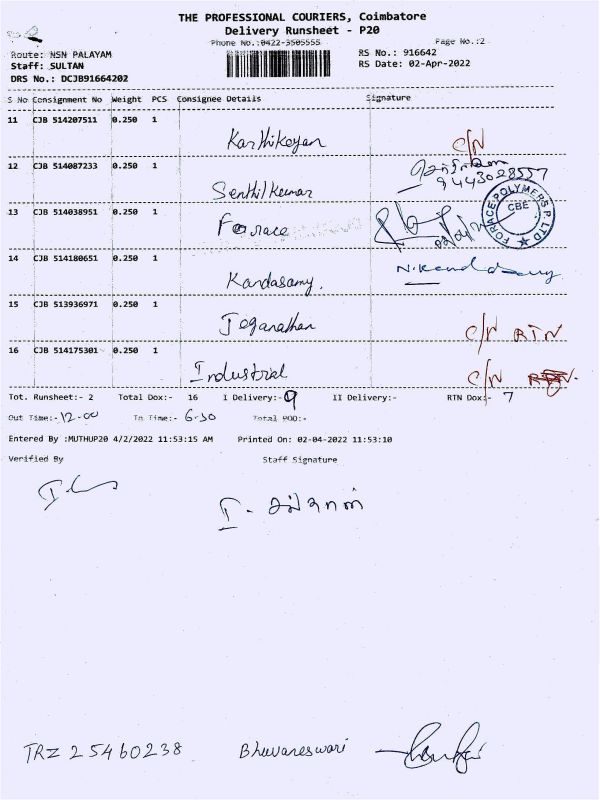 THE PROFESSIONAL COURIERS, Coimbatore
Delivery Runsheet - P20
Phone No.:0422-3505555 Page No.:2
Route: NSN PALAYAM RS No.: 916642
Staff: SULTAN RS Date: 02-Apr-2022
DRS No.: DCJB91664202
S No Consignment No Weight PCS Consignee Details Signature
11 CJB 514207511 0.250 1
Karthikeyan C/N
12 CJB 514087233 0.250 1
Senthilkumar 9443028557
13 CJB 514038951 0.250 1
Forace
FORACE POLYMERS P. LTD CBE
14 CJB 514180651 0.250 1
Kandasamy. N.Kandasamy
15 CJB 513936971 0.250 1
Jeganathan C/N RTN
16 CJB 514175301 0.250 1
Industrial C/N
Tot. Runsheet:- 2 Total Dox:- 16 I Delivery:- 9 II Delivery:- RTN Dox:- 7
Out Time:- 12-00 In Time:- 6-30 Total POD:-
Entered By :MUTHUP20 4/2/2022 11:53:15 AM Printed On: 02-04-2022 11:53:10
Verified By Staff Signature
I. சுல்தான்
TRZ 25460238 Bhuvaneswari